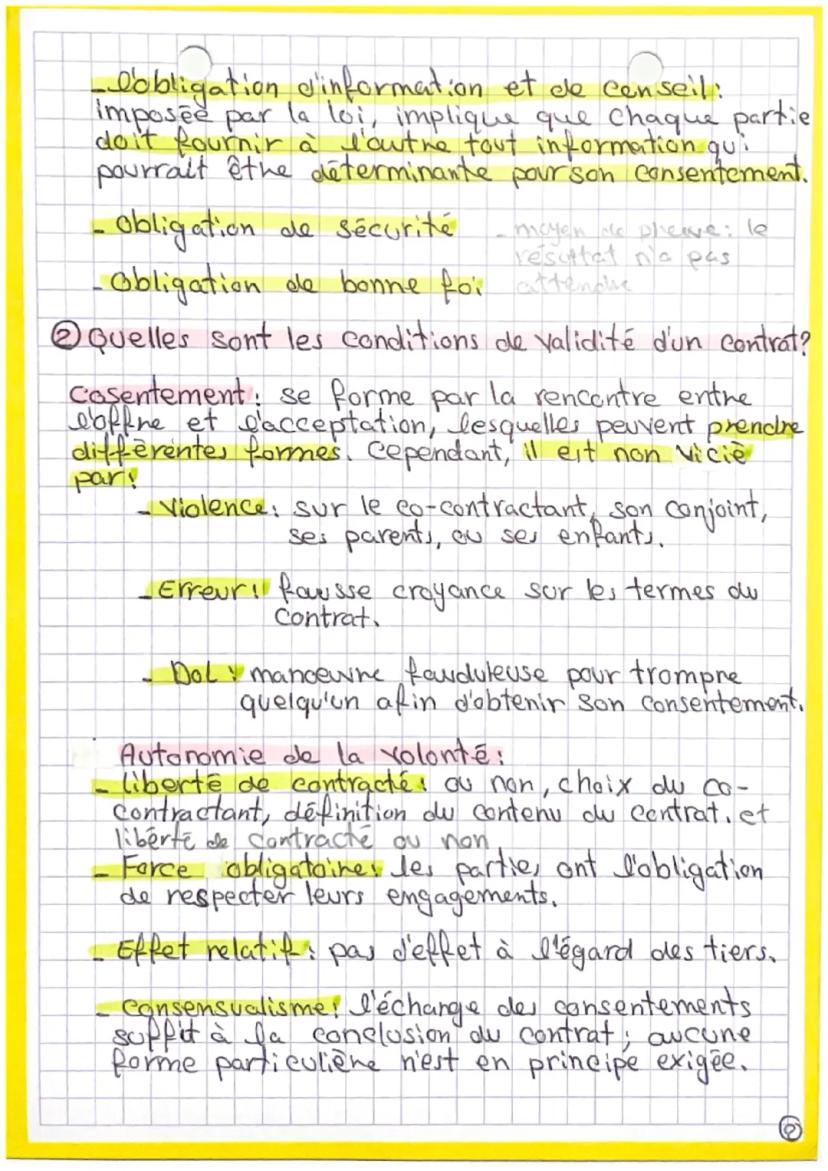 - l'obligation d'information et de conseil :
imposée par la loi, implique que chaque partie
doit fournir à l'autre tout information qui
pourrait êthe déterminante pour son consentement.
- Obligation de sécurité
- moyen de preuve : le
résultat n'a pas
attendre
- Obligation de bonne foi
② Quelles sont les conditions de validité d'un contrat?
Cosentement : se forme par la rencontre enthe
l'offre et l'acceptation, lesquelles peuvent prendre
différentes formes. Cependant, il est non vicié
par :
- Violence : sur le co-contractant, son conjoint,
ses parents, ou ses enfants.
- Erreur : fausse croyance sur les termes du
contrat.
- Dol : manoeuvre fauduleuse pour trompre
quelqu'un afin d'obtenir son consentement.
Autonomie de la volonté :
- liberté de contracté : ou non, choix du co-
contractant, définition du contenu du contrat. et
libérté de contracté ou non
- Force obligatoire : les parties ont l'obligation
de respecter leurs engagements.
- Effet relatif : pas d'effet à l'égard des tiers.
- Consensualisme : l'échange des consentements
suffit à la conclusion du contrat ; aucune
forme particulière n'est en principe exigée.
②